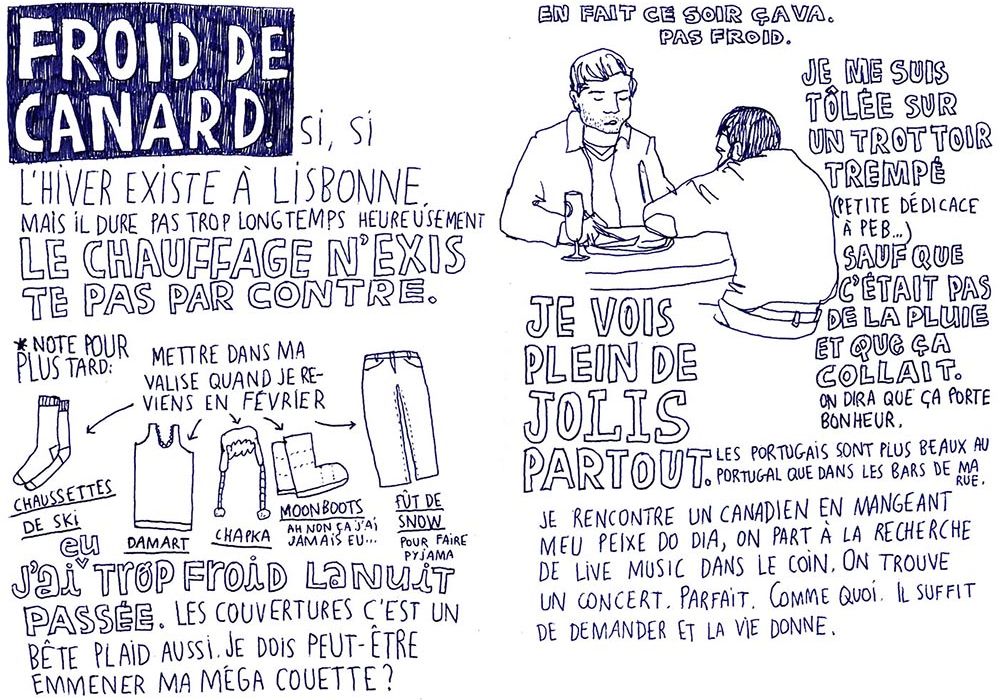 FROID DE
CANARD.
SI, SI
L'HIVER EXISTE À LISBONNE.
MAIS IL DURE PAS TROP LONGTEMPS HEUREUSEMENT
LE CHAUFFAGE N'EXIS
TE PAS PAR CONTRE.
* NOTE POUR
PLUS TARD:
METTRE DANS MA
VALISE QUAND JE RE-
VIENS EN FÉVRIER
CHAUSSETTES
DE SKI
DAMART
CHAPKA
MOONBOOTS
AH NON ÇA J'AI
JAMAIS EU...
FÛT DE
SNOW
POUR FAIRE
PYJAMA
eu
J'ai TROP FROID LA NUIT
PASSÉE. LES COUVERTURES C'EST UN
BÊTE PLAID AUSSI. JE DOIS PEUT-ÊTRE
EMMENER MA MÉGA COUETTE ?
EN FAIT CE SOIR ÇAVA.
PAS FROID.
JE ME SUIS
TÔLÉE SUR
UN TROTTOIR
TREMPÉ
(PETITE DÉDICACE
À PEB...)
SAUF QUE
C'ÉTAIT PAS
DE LA PLUIE
ET QUE ÇA
COLLAIT.
ON DIRA QUE ÇA PORTE
BONHEUR.
JE VOIS
PLEIN DE
JOLIS
PARTOUT.
LES PORTUGAIS SONT PLUS BEAUX AU
PORTUGAL QUE DANS LES BARS DE MA
RUE.
JE RENCONTRE UN CANADIEN EN MANGEANT
MEU PEIXE DO DIA, ON PART À LA RECHERCHE
DE LIVE MUSIC DANS LE COIN. ON TROUVE
UN CONCERT. PARFAIT. COMME QUOI. IL SUFFIT
DE DEMANDER ET LA VIE DONNE.